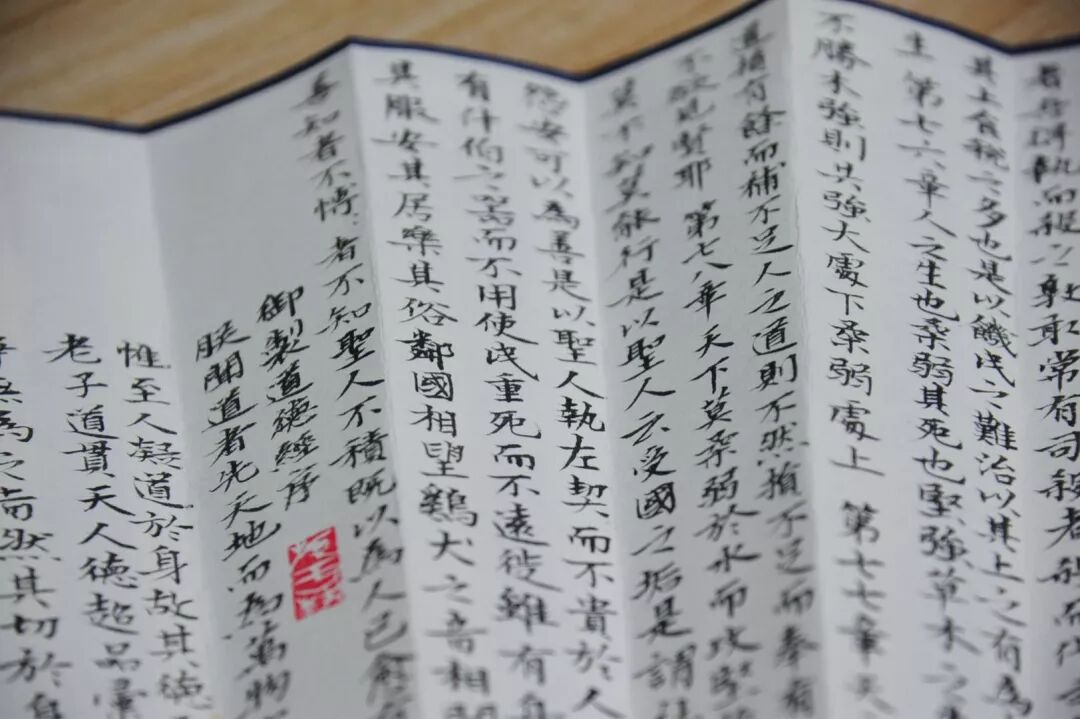 者吾得執而殺之孰敢常有司殺者殺而代
其上食税之多也是以饑民之難治以其上之有為
生 第七六章人之生也柔弱其死也堅強草木之
不勝木強則共強大處下柔弱處上 第七七章天
道損有餘而補不足人之道則不然損不足而奉有
不欲見賢耶 第七八章天下莫柔弱於水而攻堅
莫不知莫能行是以聖人云受國之垢是謂社
怨安可以為善是以聖人執左契而不貴於人
有什伯之器而不用使民重死而不遠徙雖有舟
其服安其居樂其俗鄰國相望鷄犬之音相聞
善知者不博:者不知聖人不積既以為人己愈
御製道德經序
朕聞道者先天地而為萬物
惟至人凝道於身故其德
老子道貫天人德超品彙
無為之而然其切於身